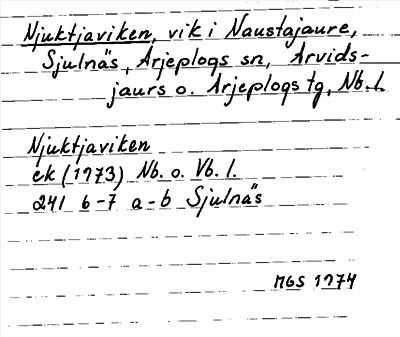 Njuktjaviken, vik i Naustajaure,
Sjulnäs, Arjeplogs sn, Arvids-
jaurs o. Arjeplogs tg, Nb. l.
Njuktjaviken
ek (1973) Nb. o. Vb. l.
241 6-7 a-b Sjulnäs
MGS 1974